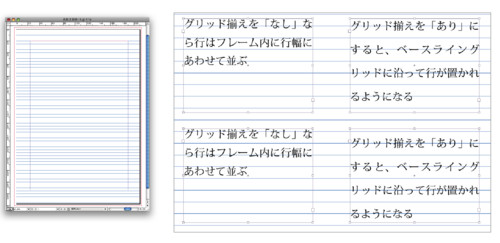 グリッド揃えを「なし」な
ら行はフレーム内に行幅に
あわせて並ぶ
グリッド揃えを「あり」に
すると、ベースライング
リッドに沿って行が置かれ
るようになる
グリッド揃えを「なし」な
ら行はフレーム内に行幅に
あわせて並ぶ
グリッド揃えを「あり」に
すると、ベースライング
リッドに沿って行が置かれ
るようになる